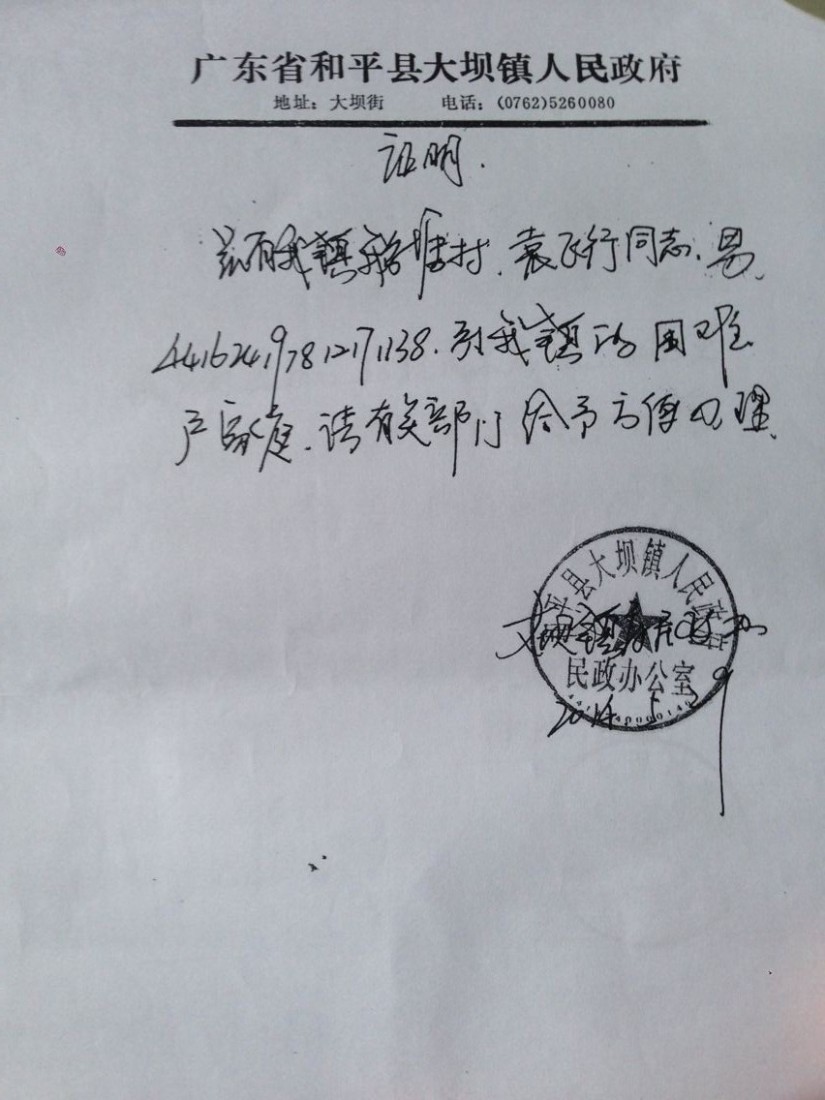 广东省和平县大坝镇人民政府
地址：大坝街 电话：(0762)5260080
证明.
兹有我镇 村.袁飞行同志.男.
441624197812171138.系我镇的困难
户家庭.请有关部门给予方便办理.
平县大坝镇人民政府
大坝镇
民政办公室
2014.5.29